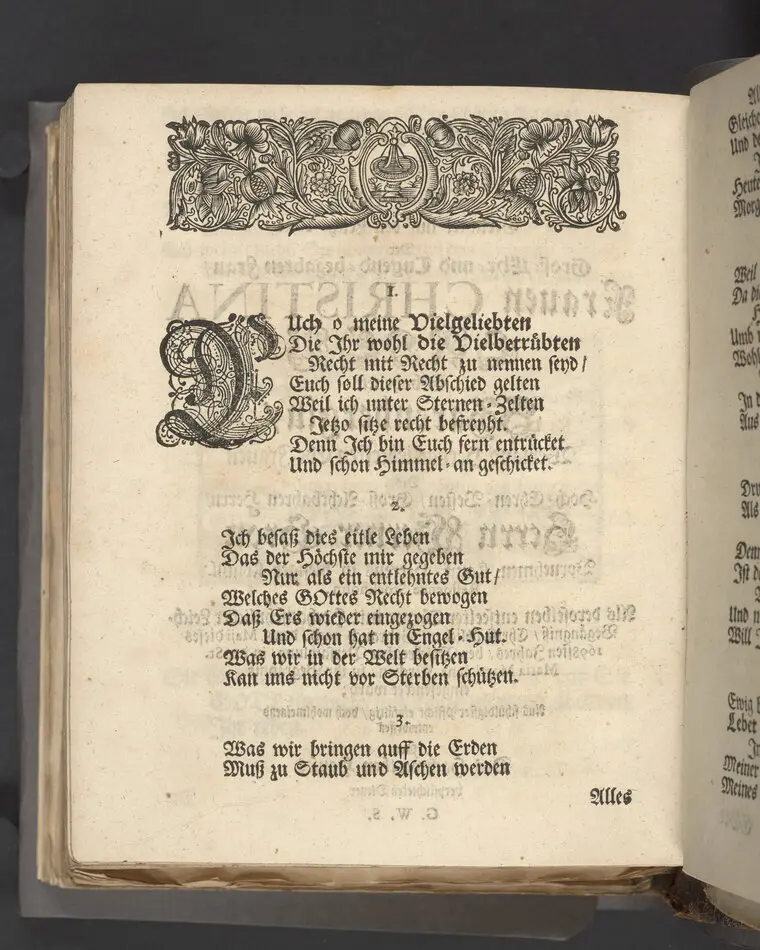 1.
EUch o meine Vielgeliebten
Die Ihr wohl die Vielbetrübten
Recht mit Recht zu nennen seyd/
Euch soll dieser Abschied gelten
Weil ich unter Sternen-Zelten
Jetzo sitze recht befreyht.
Denn Ich bin Euch fern entrücket
Und schon Himmel-an geschicket.
2.
Ich besaß dies eitle Leben
Das der Höchste mir gegeben
Nur als ein entlehntes Gut/
Welches GOttes Recht bewogen
Daß Ers wieder eingezogen
Und schon hat in Engel-Hut.
Was wir in der Welt besitzen
Kan uns nicht vor Sterben schützen.
3.
Was wir bringen auff die Erden
Muß zu Staub und Aschen werden
Alles
Und
Heute
Weil
Umb
Aus
Als
Denn
Und
Will
Ewig
Meiner
Meines